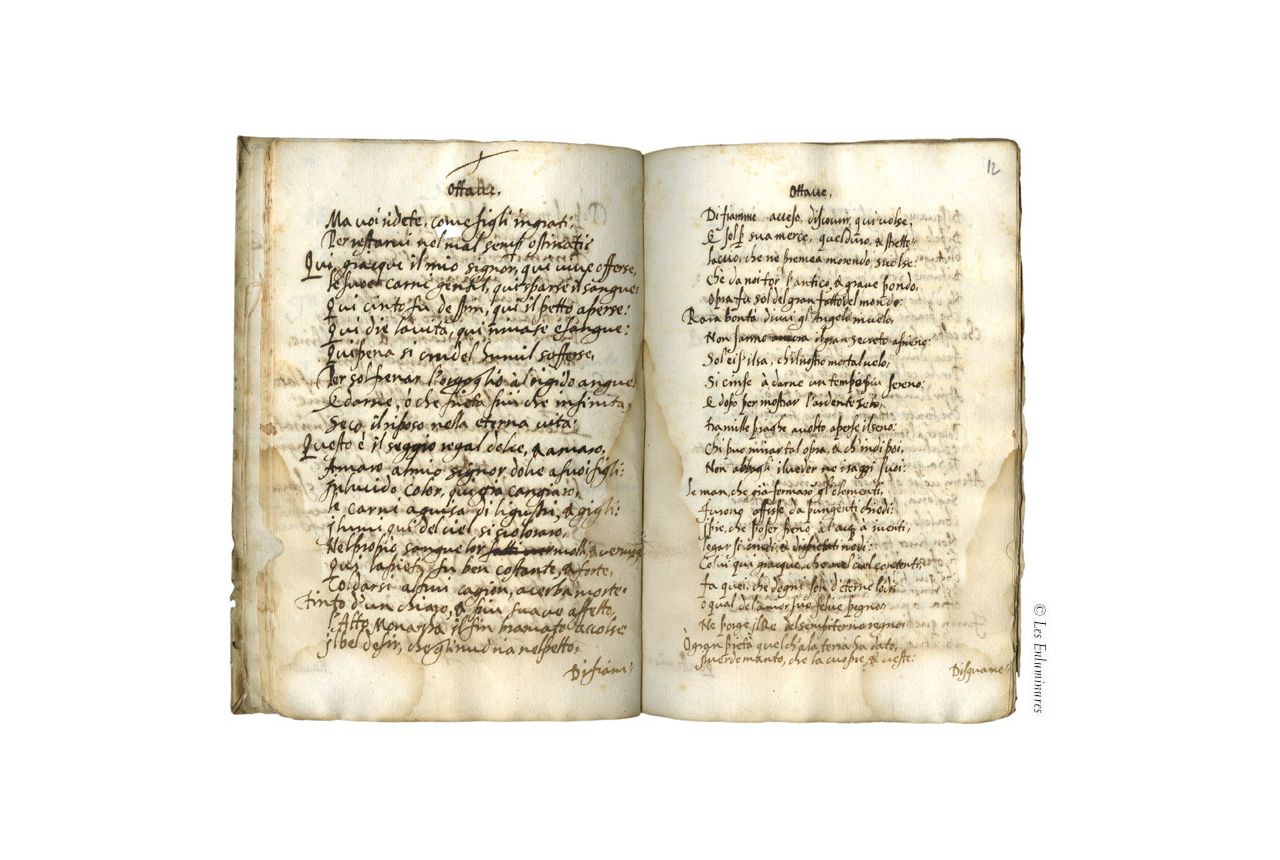 Ottaue.
Ma voi ridete, come figli ingrati,
Per restarui nel mal sempre ostinati:
Qui, giacque il mio signor, qui viue offerse,
le sue carni gentil, qui sparse il sangue:
Qui cinto fu de spin, qui il petto aperse:
Qui die la vita, qui rimase esangue:
Qui pena si crudel humil sofferse,
Per sol frenar l'orgoglio al rigido angue,
E darne, ò che pietà più che infinita,
Seco, il riposo nella eterna vita:
Questo è il seggio regal dolce, & amaro,
Amaro al mio signor dolce a suoi figli:
In liuido color, qui già cangiaro,
le carni a guisa di ligustri, & gigli:
I lumi qui del ciel si scoloraro,
Nel proprio sangue lor molli, & vermigli
Qui la pietà fu ben costante, & forte,
Co darsi altrui cagion, acerba morte:
Tinto d'un chiaro, & piu suave affetto,
l'Alto Monarcha il fin bramato accolse
il bel desir, che gli nudria nel petto,
Di fiam:
12
Ottaue.
Di fiamme acceso, discourir, qui volse:
E sol sua merce, quel duro, & stretto
laccio, che ne premea morendo, sciolse:
Che da noi tor l'antico, & graue pondo,
Opra fu sol del gran fattor del mondo:
Rara bontà di cui gl'Angeli in cielo,
Non sanno il gran secreto apieno:
Sol ei s'il sa, ch'il nostro mortal velo,
Si cinse à darne un tempo più sereno:
E dopo per mostrar l'ardente zelo,
fra mille piaghe auolto aperse il seno:
Chi puo mirar tal opra, & ch'indi poi,
Non abbagli il veder ne i raggi suoi:
le man, che già formaro gl'elementi,
furono affisse da pungenti chiodi:
I pie, che poser freno, a l'acq à i venti,
legar si crudi, & nodi:
Colui qui giacque, che nel ciel contenti:
fa quei, che degni son d'eterne lodi
o qual del amor suo felice pegno,
Ne porge il Re del sempiterno regno:
O gran pietà quel ch'a la terra ha dato,
il verde manto, che la cuopre, & veste:
Di squame
© Les Enluminures